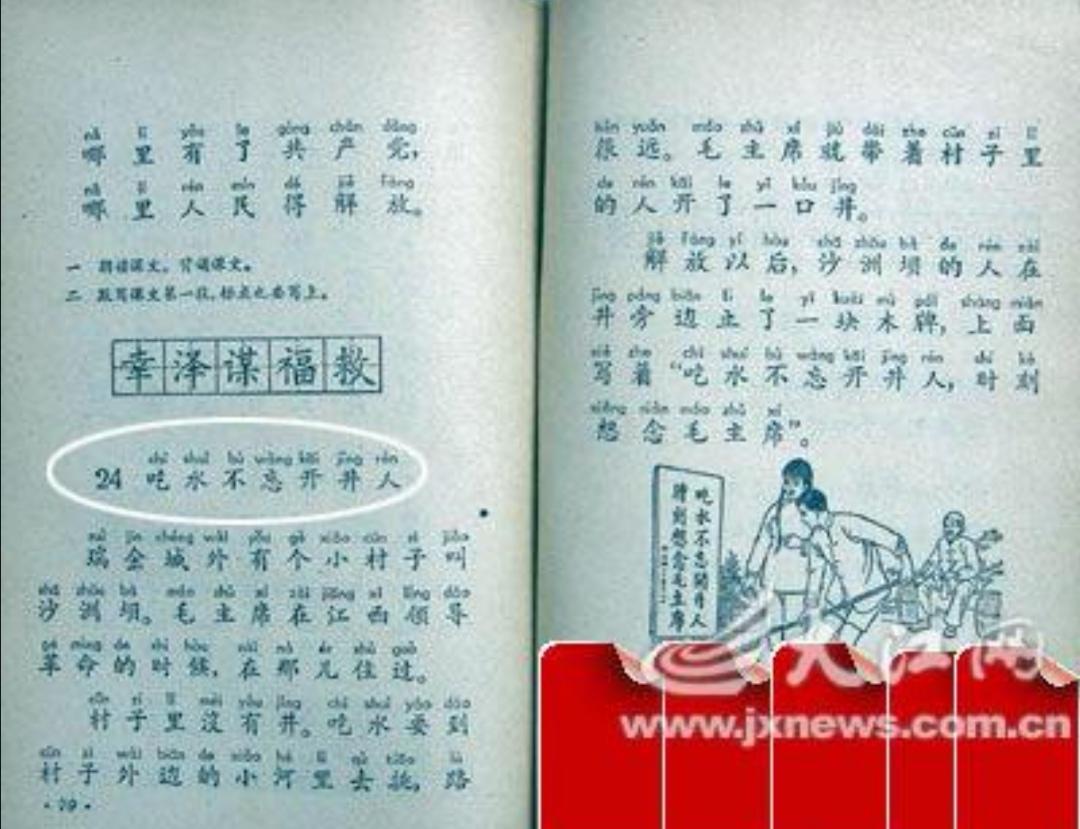 nǎ lǐ yǒu le gòng chǎn dǎng
哪里有了共产党，
nǎ lǐ rén mín dé jiě fàng
哪里人民得解放。
一 朗读课文。背诵课文。
二 默写课文第一段，标点也要写上。
幸泽谋福救
chī shuǐ bú wàng kāi jǐng rén
24 吃水不忘开井人
ruì jīn chéng wài yǒu gè xiǎo cūn zi jiào
瑞金城外有个小村子叫
shā zhōu bà máo zhǔ xí zài jiāng xī lǐng dǎo
沙洲坝。毛主席在江西领导
gé mìng de shí hòu zài nà ér zhù guò
革命的时候，在那儿住过。
cūn zi lǐ méi yǒu jǐng chī shuǐ yào dào
村子里没有井。吃水要到
cūn zi wài biān de xiǎo hé lǐ qù tiāo lù
村子外边的小河里去挑，路
hěn yuǎn máo zhǔ xí jiù dài zhe cūn zi lǐ
很远。毛主席就带着村子里
de rén kāi le yì kǒu jǐng
的人开了一口井。
jiě fàng yǐ hòu shā zhōu bà de rén zài
解放以后，沙洲坝的人在
jǐng páng biān lì le yí kuài mù pái shàng miàn
井旁边立了一块木牌，上面
xiě zhe chī shuǐ bú wàng kāi jǐng rén shí kè
写着“吃水不忘开井人，时刻
xiǎng niàn máo zhǔ xí
想念毛主席”。
吃水不忘開井人
時刻想念毛主席
大江网
www.jxnews.com.cn